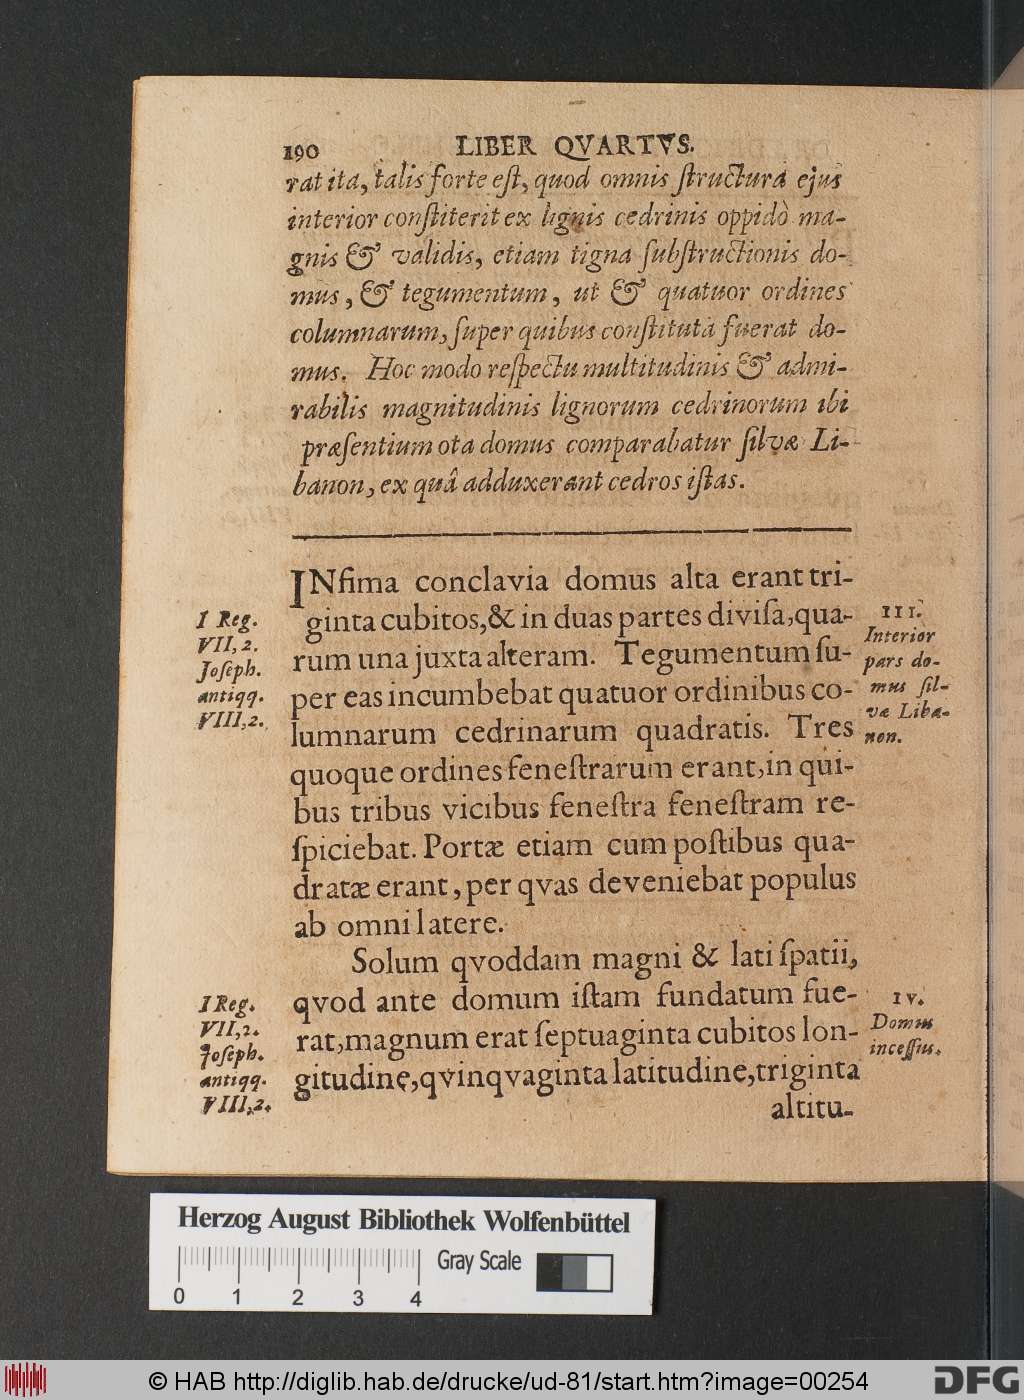 190 LIBER QVARTVS.
rat ita, talis forte eſt, quod omnis ſtructura ejus
interior conſtiterit ex lignis cedrinis oppidò ma-
gnis & validis, etiam tigna ſubſtructionis do-
mus, & tegumentum, ut & quatuor ordines
columnarum, ſuper quibus conſtituta fuerat do-
mus. Hoc modo reſpectu multitudinis & admi-
rabilis magnitudinis lignorum cedrinorum ibi
præſentium ota domus comparabatur ſilvæ Li-
banon, ex quâ adduxerant cedros iſtas.
INfima conclavia domus alta erant tri-
ginta cubitos, & in duas partes diviſa, qua-
rum una juxta alteram. Tegumentum ſu-
per eas incumbebat quatuor ordinibus co-
lumnarum cedrinarum quadratis. Tres
quoque ordines feneſtrarum erant, in qui-
bus tribus vicibus feneſtra feneſtram re-
ſpiciebat. Portæ etiam cum poſtibus qua-
dratæ erant, per qvas deveniebat populus
ab omni latere.
I Reg.
VII, 2.
Joſeph.
antiqq.
VIII, 2.
III.
Interior
pars do-
mus ſil-
væ Liba-
non.
Solum qvoddam magni & lati ſpatii,
qvod ante domum iſtam fundatum fue-
rat, magnum erat ſeptuaginta cubitos lon-
gitudine, qvinqvaginta latitudine, triginta
altitu-
I Reg.
VII, 2.
Joſeph.
antiqq.
VIII, 2.
IV.
Domus
inceſſus.
Herzog August Bibliothek Wolfenbüttel
Gray Scale
0 1 2 3 4
© HAB http://diglib.hab.de/drucke/ud-81/start.htm?image=00254
DFG